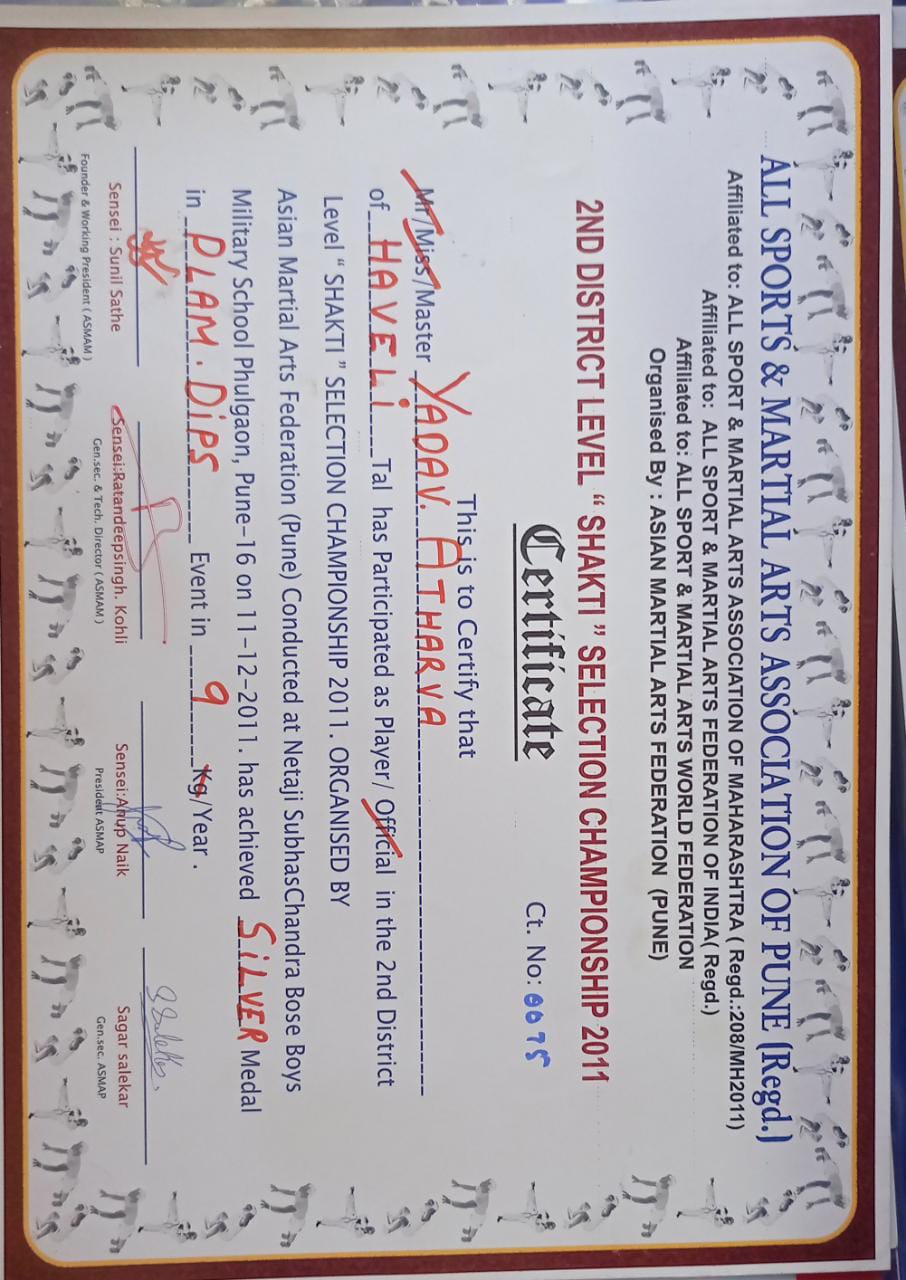 ALL SPORTS & MARTIAL ARTS ASSOCIATION OF PUNE (Regd.)
Affiliated to: ALL SPORT & MARTIAL ARTS ASSOCIATION OF MAHARASHTRA ( Regd.:208/MH2011)
Affiliated to: ALL SPORT & MARTIAL ARTS FEDERATION OF INDIA( Regd.)
Affiliated to: ALL SPORT & MARTIAL ARTS WORLD FEDERATION
Organised By : ASIAN MARTIAL ARTS FEDERATION (PUNE)
2ND DISTRICT LEVEL “ SHAKTI ” SELECTION CHAMPIONSHIP 2011
Certificate
Ct. No: 0075
This is to Certify that
Mr/Miss/Master YADAV. ATHARVA
of HAVELi Tal has Participated as Player/ Official in the 2nd District
Level “ SHAKTI ” SELECTION CHAMPIONSHIP 2011. ORGANISED BY
Asian Martial Arts Federation (Pune) Conducted at Netaji SubhasChandra Bose Boys
Military School Phulgaon, Pune-16 on 11-12-2011. has achieved SiLVER Medal
in PLAM. DiPS Event in 9 Kg/Year .
S Salekar.
Sensei : Sunil Sathe Sensei:Ratandeepsingh. Kohli Sensei:Anup Naik Sagar salekar
Founder & Working President ( ASMAM ) Gen.sec. & Tech. Director ( ASMAM ) President ASMAP Gen.sec. ASMAP